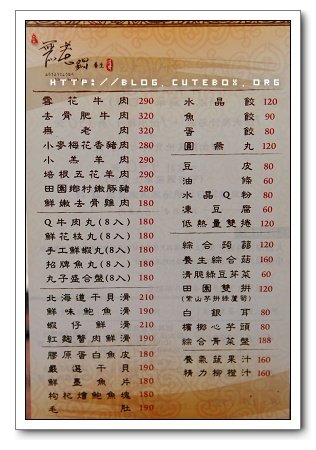 無老鍋
HTTP://BLOG.CUTEBOX.ORG
雪花牛肉 290
去骨肥牛肉 320
無老肉 320
小麥梅花香豬肉 280
小羔羊肉 280
培根五花羊肉 280
田園鄉村嫩豚豬 280
鮮嫩去骨雞肉 180
Q牛肉丸(8入) 180
鮮花枝丸(8入) 180
手工鮮蝦丸(8入) 180
招牌魚丸(8入) 180
丸子盛合盤(8入) 180
北海道干貝滑 210
鮮味鮑魚滑 190
蝦仔鮮滑 210
紅麴蟹肉鮮滑 190
膠原蛋白魚皮 180
嚴選干貝 190
鮮墨魚片 180
枸杞燴鮑魚塊 180
毛肚 190
水晶餃 120
魚餃 90
蛋餃 80
圓燕丸 120
豆皮 80
油條 60
水晶Q粉 80
凍豆腐 60
低熱量雙捲 120
綜合蒟蒻 120
養生綜合菇 160
清脆綠豆芽菜 60
田園雙拼 120
(紫山芋拼綠蘆筍)
白銀耳 80
檳榔心芋頭 80
綜合青菜盤 188
養氣蔬果汁 160
精力柳橙汁 160